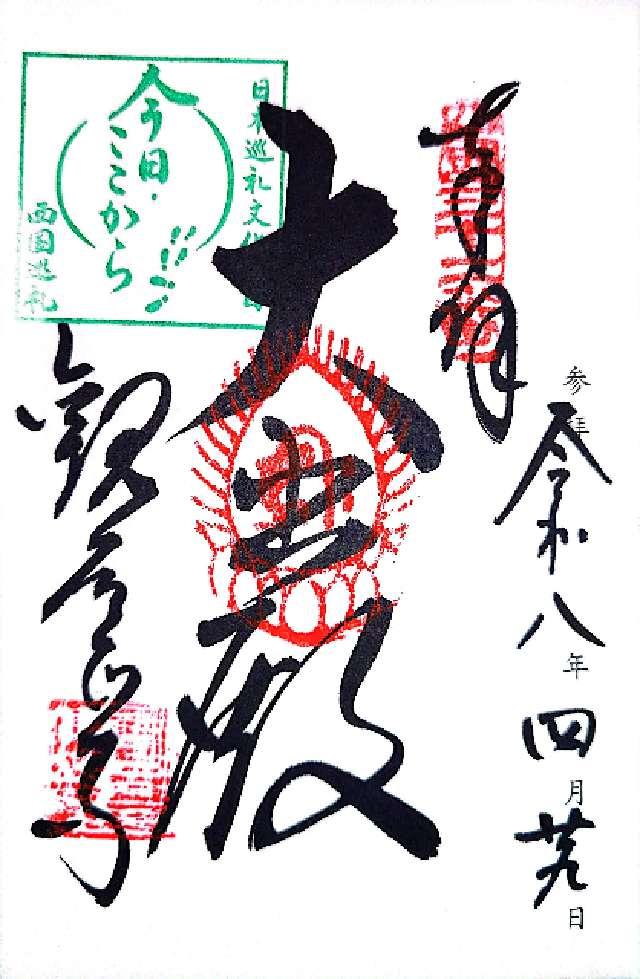 奉拝
参拝
令和八年四月廿九日
大悲殿
観音正寺
日本巡礼文化
今日・
ここから
西国巡礼